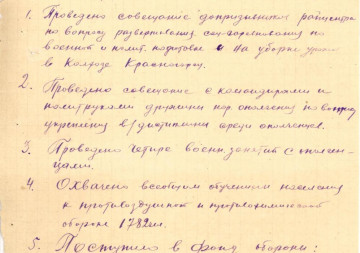 1. Проведено совещание допризывников райцентра
по вопросу развертывания соцсоревнования по
военной и полит. подготовке и на уборке урожая
в Колхозе Красногор.
2. Проведено совещание с командирами и
политруками дружины нар. ополчения по вопросу
укрепления в/дисциплины среди ополченцев.
3. Проведено четыре военн. занятий с ополчен-
цами.
4. Охвачено всеобщим обучением населения
к противовоздушной и противохимической
обороне 1782 чел.
5. Поступило в фонд обороны: